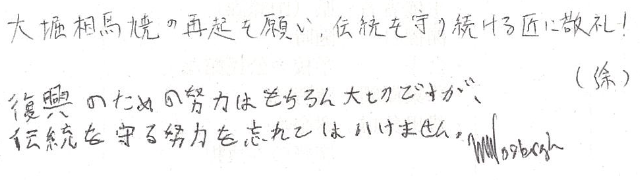 大堀相馬焼の再起を願い、伝統を守り続ける匠に敬礼!
(徐)
復興のための努力はもちろん大切ですが、
伝統を守る努力を忘れてはいけません。